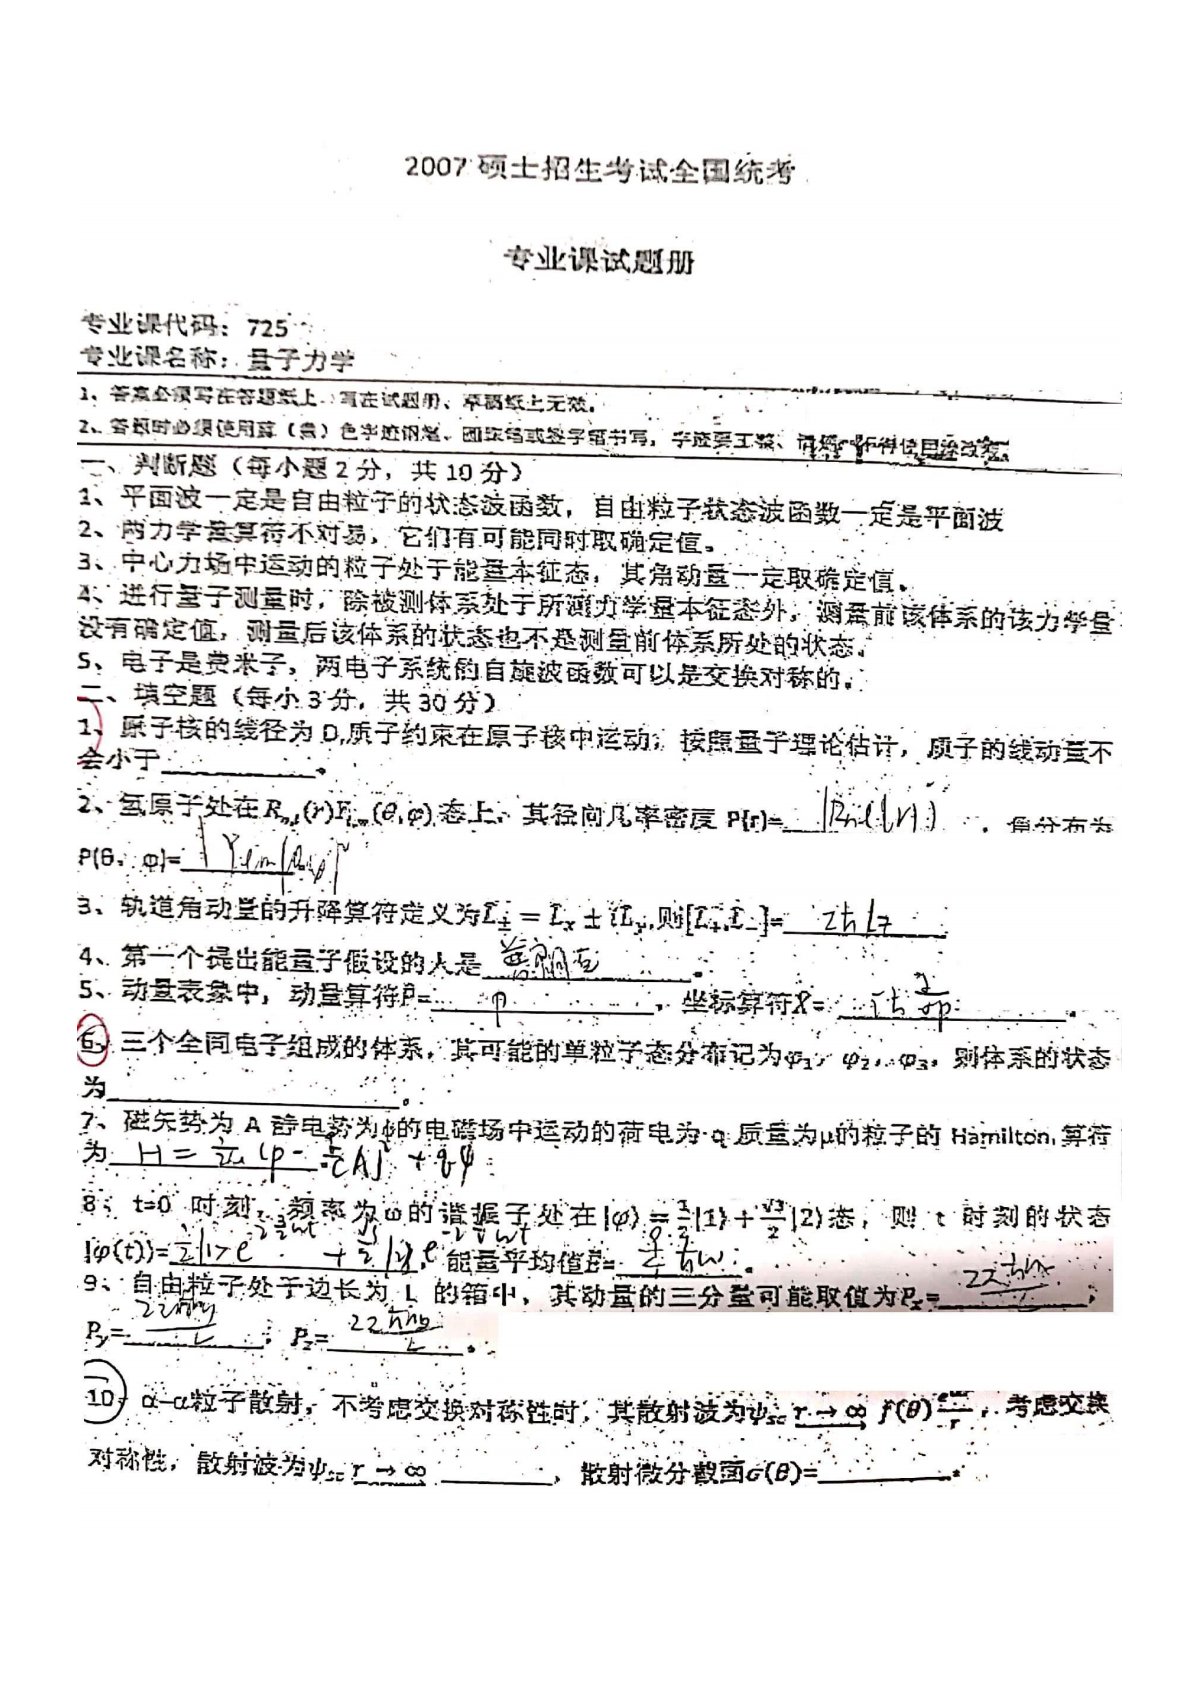 2007 硕士招生考试全国统考
专业课试题册
专业课代码：725
专业课名称：量子力学
1、答案必须写在答题纸上，写在试题册、草稿纸上无效。
2、答题时必须使用蓝（黑）色字迹钢笔、圆珠笔或签字笔书写，字迹要工整、清楚，
一、判断题（每小题 2 分，共 10 分）
1、平面波一定是自由粒子的状态波函数，自由粒子状态波函数一定是平面波
2、两力学量算符不对易，它们有可能同时取确定值。
3、中心力场中运动的粒子处于能量本征态，其角动量一定取确定值。
4、进行量子测量时，除被测体系处于所测力学量本征态外，测量前该体系的该力学量
没有确定值，测量后该体系的状态也不是测量前体系所处的状态。
5、电子是费米子，两电子系统的自旋波函数可以是交换对称的。
二、填空题（每小 3 分，共 30 分）
1、原子核的线径为 D,质子约束在原子核中运动，按照量子理论估计，质子的线动量不
会小于___________。
2、氢原子处在 Rₙₗ(r)Yₗₘ(θ,φ) 态上，其径向几率密度 P(r)= |Rnl(r)| ，角分布为
P(θ，φ)= |Ylm(θ,φ)|²
3、轨道角动量的升降算符定义为 L± = Lx ± iLy,则[L₊,L₋]= 2ħLz
4、第一个提出能量子假设的人是 普朗克 。
5、动量表象中，动量算符P̂= p ，坐标算符X̂= iħ ∂/∂p 。
6、三个全同电子组成的体系，其可能的单粒子态分布记为φ₁，φ₂，φ₃，则体系的状态
为___________。
7、磁矢势为 A 静电势为φ的电磁场中运动的荷电为 q 质量为μ的粒子的 Hamilton 算符
为 H = 1/2u (p - q/c A)² + qφ
8、t=0 时刻，频率为ω的谐振子处在|φ⟩ = 1/2|1⟩ + √3/2|2⟩态，则 t 时刻的状态
|φ(t)⟩= ，能量平均值Ē= ħω 。
9、自由粒子处于边长为 L 的箱中，其动量的三分量可能取值为Pₓ= ；
P_y= ；P_z= 。
10、α-α粒子散射，不考虑交换对称性时，其散射波为ψsc r→∞ f(θ) e^{ikr}/r ，考虑交换
对称性，散射波为ψsc r→∞ ________，散射微分截面σ(θ)=_________.